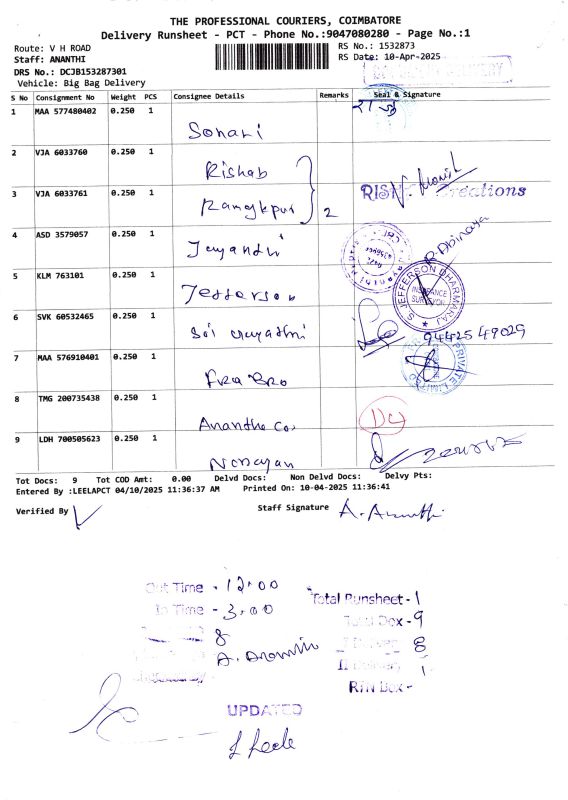 THE PROFESSIONAL COURIERS, COIMBATORE
Delivery Runsheet - PCT - Phone No.:9047080280 - Page No.:1
Route: V H ROAD
RS No.: 1532873
Staff: ANANTHI
RS Date: 10-Apr-2025
DRS No.: DCJB153287301
Vehicle: Big Bag Delivery
S No Consignment No Weight PCS Consignee Details Remarks Seal & Signature
1 MAA 577480402 0.250 1
Sonali
2 VJA 6033760 0.250 1
Rishab
3 VJA 6033761 0.250 1
2
Creations
4 ASD 3579057 0.250 1
Jayandhi
R Abinaya
5 KLM 763101 0.250 1
Jefferson
S. JEFFERSON DHARMARAJ
INSURANCE SURVEYOR
6 SVK 60532465 0.250 1
Sri
94425 49029
7 MAA 576910401 0.250 1
Fra Bro
PRIVATE LIMITED
8 TMG 200735438 0.250 1
Anantha Co,
9 LDH 700505623 0.250 1
Narayan
Tot Docs: 9 Tot COD Amt: 0.00 Delvd Docs: Non Delvd Docs: Delvy Pts:
Entered By :LEELAPCT 04/10/2025 11:36:37 AM Printed On: 10-04-2025 11:36:41
Verified By
Staff Signature A. Ananthi
Out Time - 12.00
In Time - 3.00
8
Total Runsheet - 1
Total Box - 9
8
1
RTN Box -
UPDATED